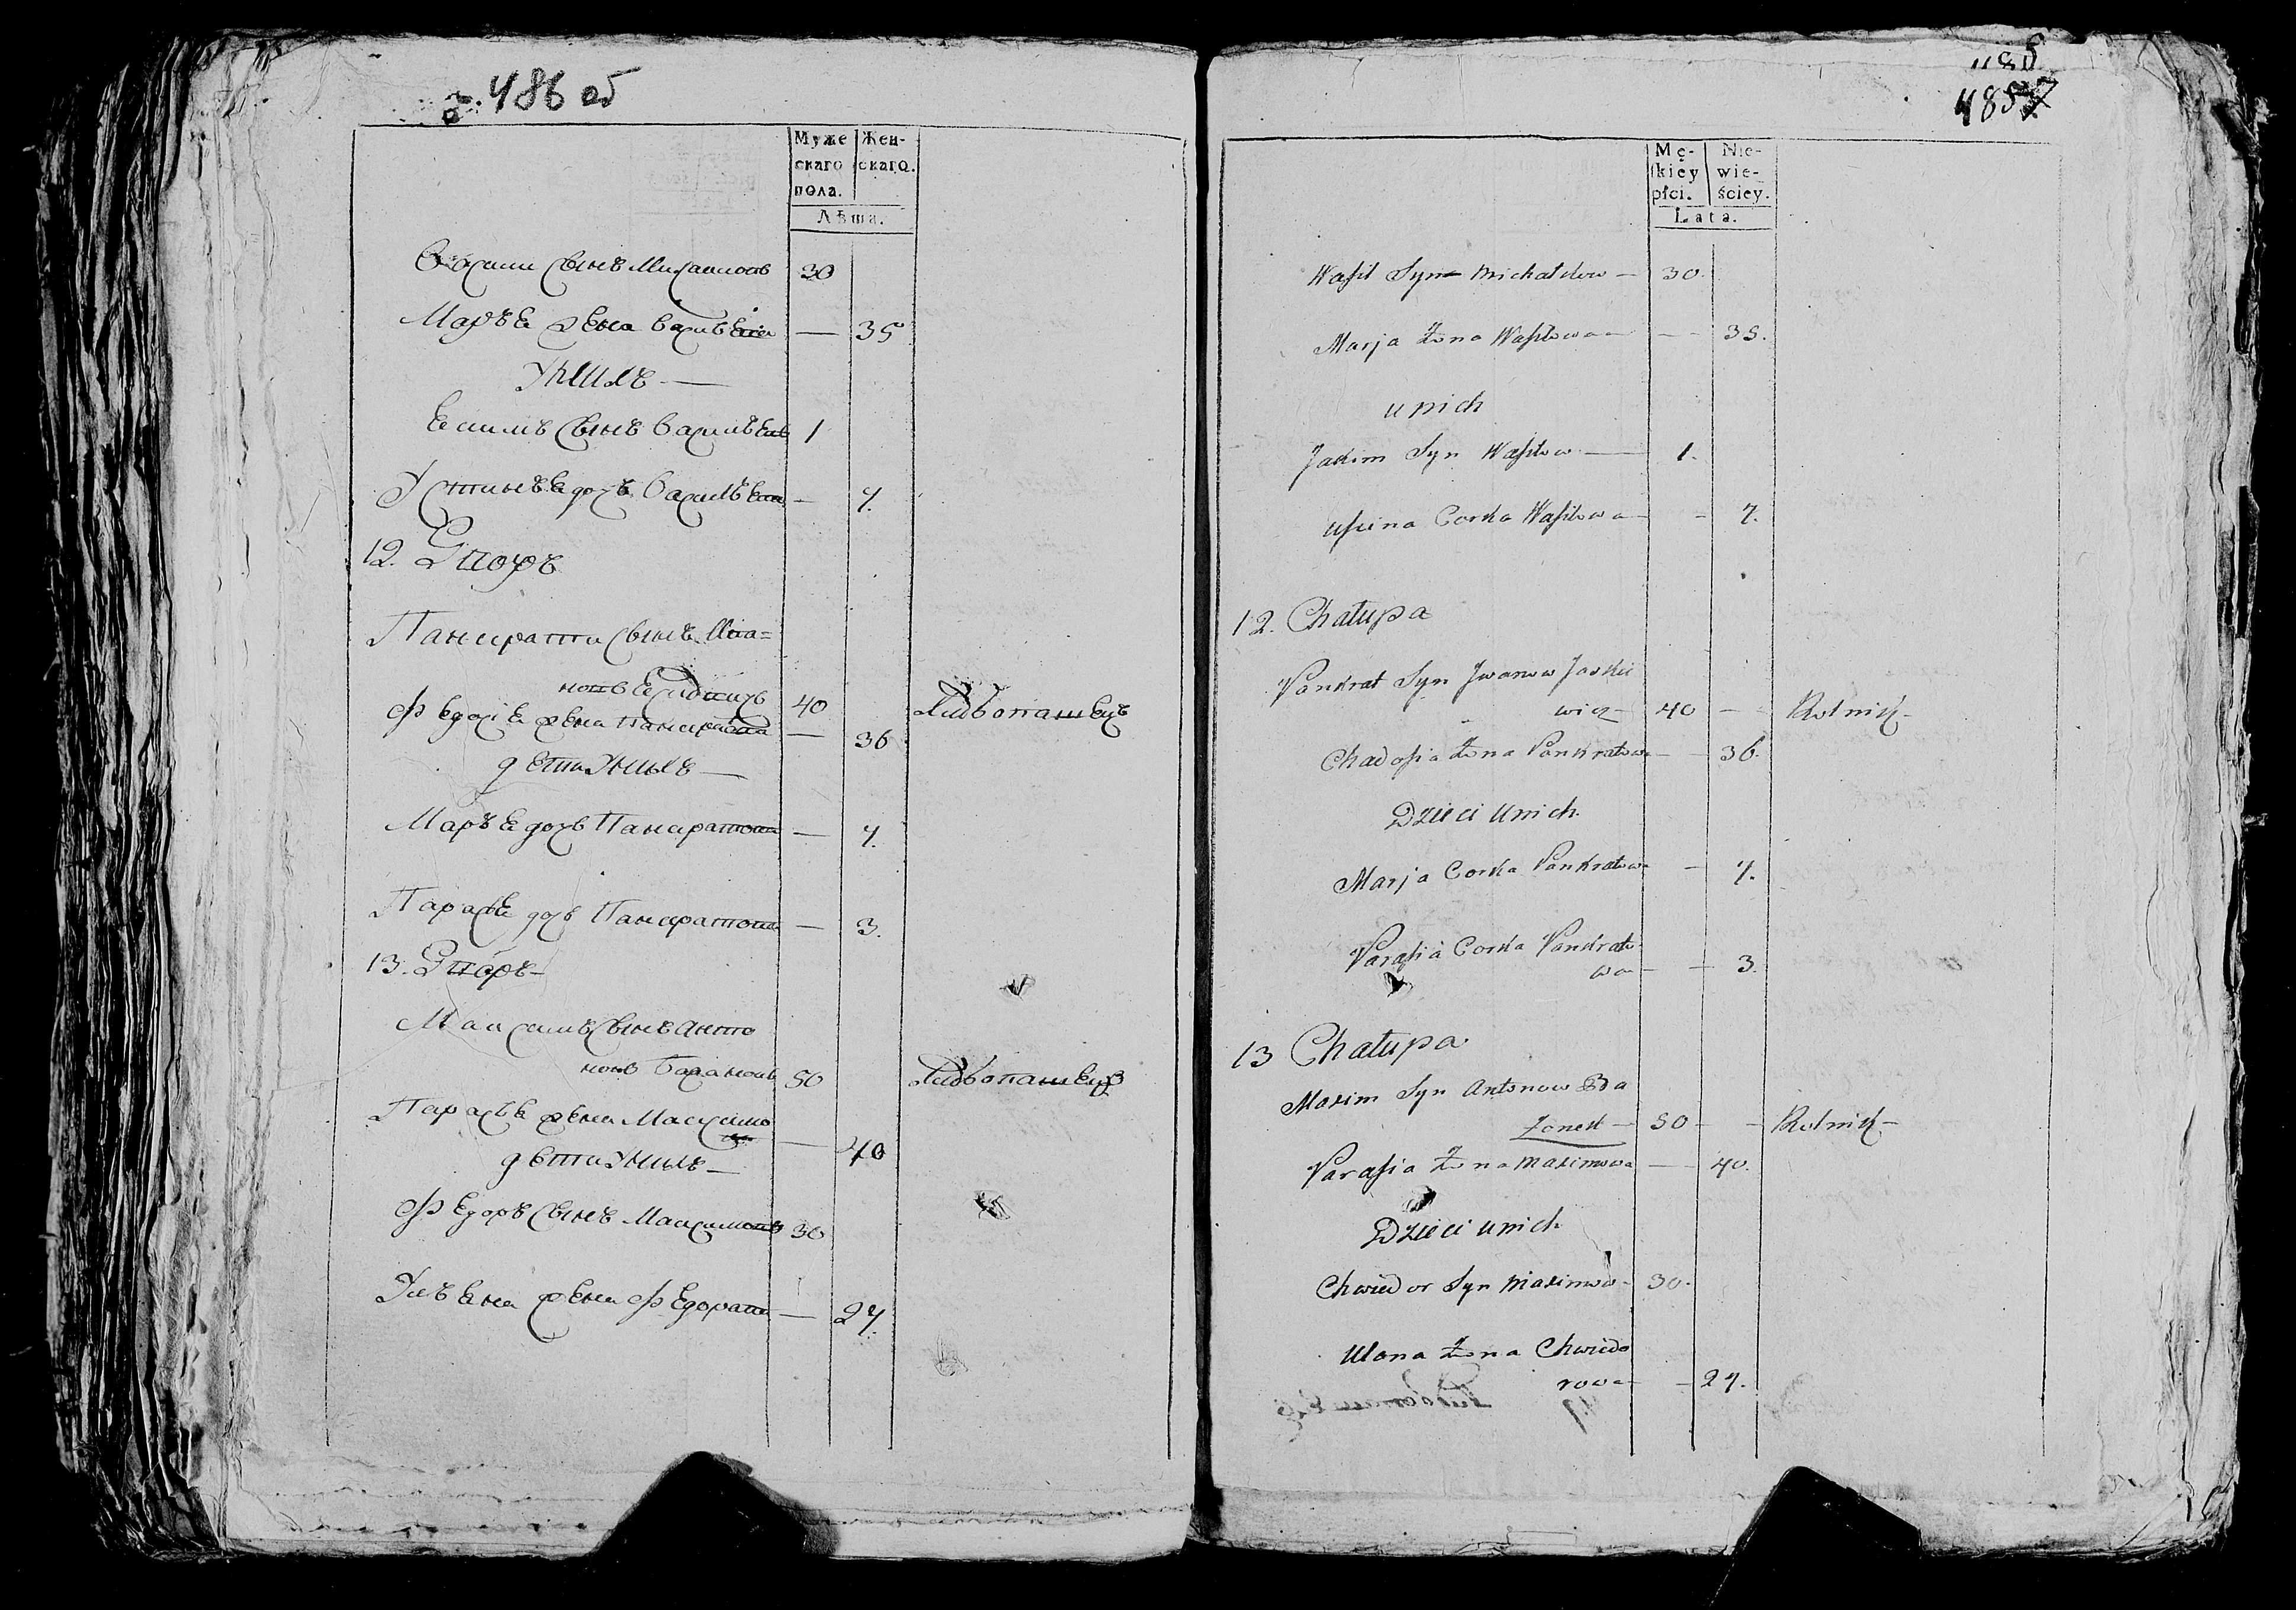 486 об
Муже
скаго
пола.
Жен-
скаго.
Лѣта.
Василий сынъ Михайловъ 30
Марья жена Васильева — 35
У нихъ —
Еким сынъ Васильевъ 1
Устинья дочь Васильева — 7.
12. Дворъ
Панкратий сынъ Ива=
новъ 40 Хлебопашецъ
Федосья жена Панкратова — 36
дети У нихъ —
Марья дочь Панкратова — 7.
Парасья дочь Панкратова — 3.
13. Дворъ —
Максимъ сынъ Анто
новъ 50 Хлебопашецъ
Парасья жена Максимо
ва — 40
дети У нихъ —
Федоръ сынъ Максимовъ 30
Ульяна жена Федорова — 27.
487
Mę-
skiey
płci.
Nie-
wie-
ściey.
Lata.
Wasil Syn Michałow — 30.
Marja Żona Wasilowa — 35.
u nich
Jakim Syn Wasilow — 1.
Uscina Corka Wasilowa — 7.
12. Chałupa
Pankrat Syn Jwanow Jaskie
wicz — 40 — Rolnik —
Chadosia Żona Pankratowa — 36.
Dzieci u nich.
Marja Corka Pankratowa — 7.
Parasia Corka Pankrato-
wa — 3.
13 Chałupa
Maxim Syn Antonow Ba
zonek — 50 — Rolnik —
Parasia Żona Maximowa — 40.
Dzieci u nich
Chwiedor Syn Maximow — 30.
Ulana Żona Chwiedo
rowa — 27.